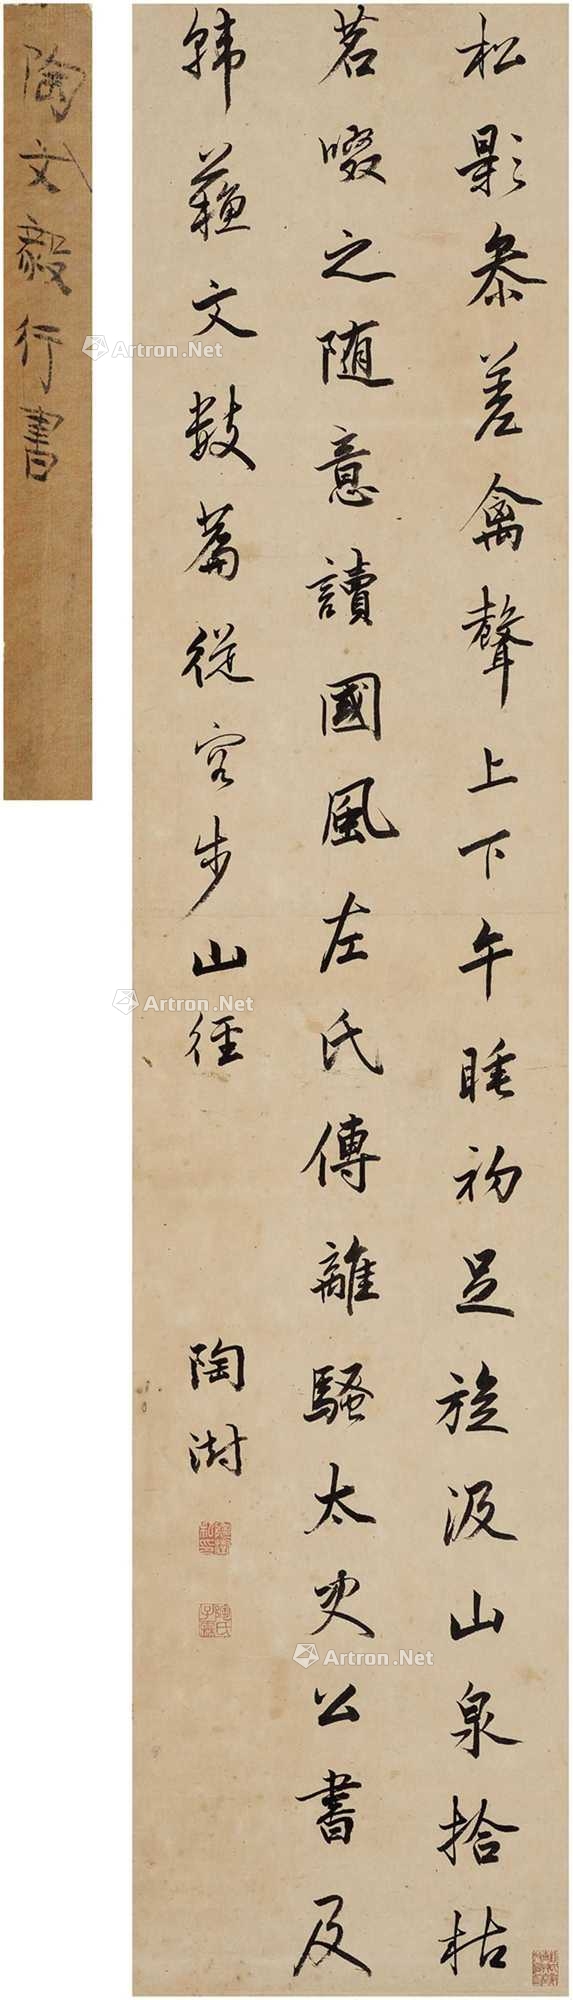 松影參差禽聲上下午睡初足旋汲山泉拾枯
茗啜之隨意讀國風左氏傳離騷太史公書及
韓蘇文數篇從容步山徑
陶澍
陶澍私印
陶氏子霖
陶文毅行書
Artron.Net
Artron.Net
Artron.Net